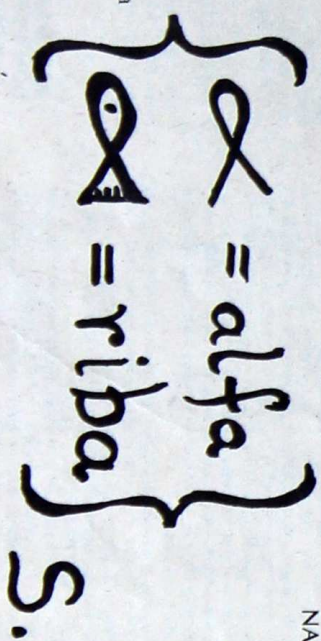 { α = alfa
= riba } S.
NA